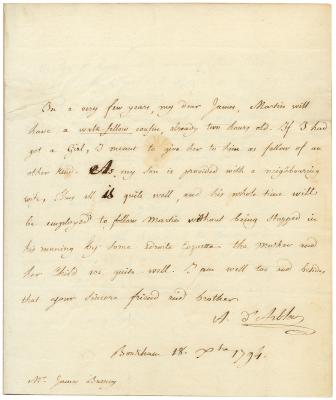 In a very few years, my dear James, Martin will
have a work fellow cousin, already two hours old. If I had
got a Girl, I meant to give her to him as fellow of an
other kind. As my son is provided with a neighbouring
wife, thus all is quite well, and his whole time will
be employed to follow Martin without being stopped in
his running by some Coquette the mother and
her Child are quite well. I am well too and besides
that your sincere friend and brother
A. d'Arblay
Bookham 18. Xbre 1794.
Mr. James Burney